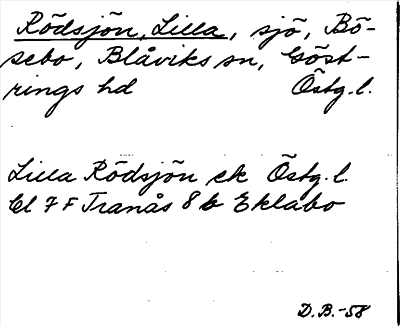 Rödsjön, Lilla, sjö, Bö-
sebo, Blåviks sn, Göst-
rings hd Östg.l.
Lilla Rödsjön ek Östg.l.
Bl 7 F Tranås 8 b Eklabo
D.B.-58